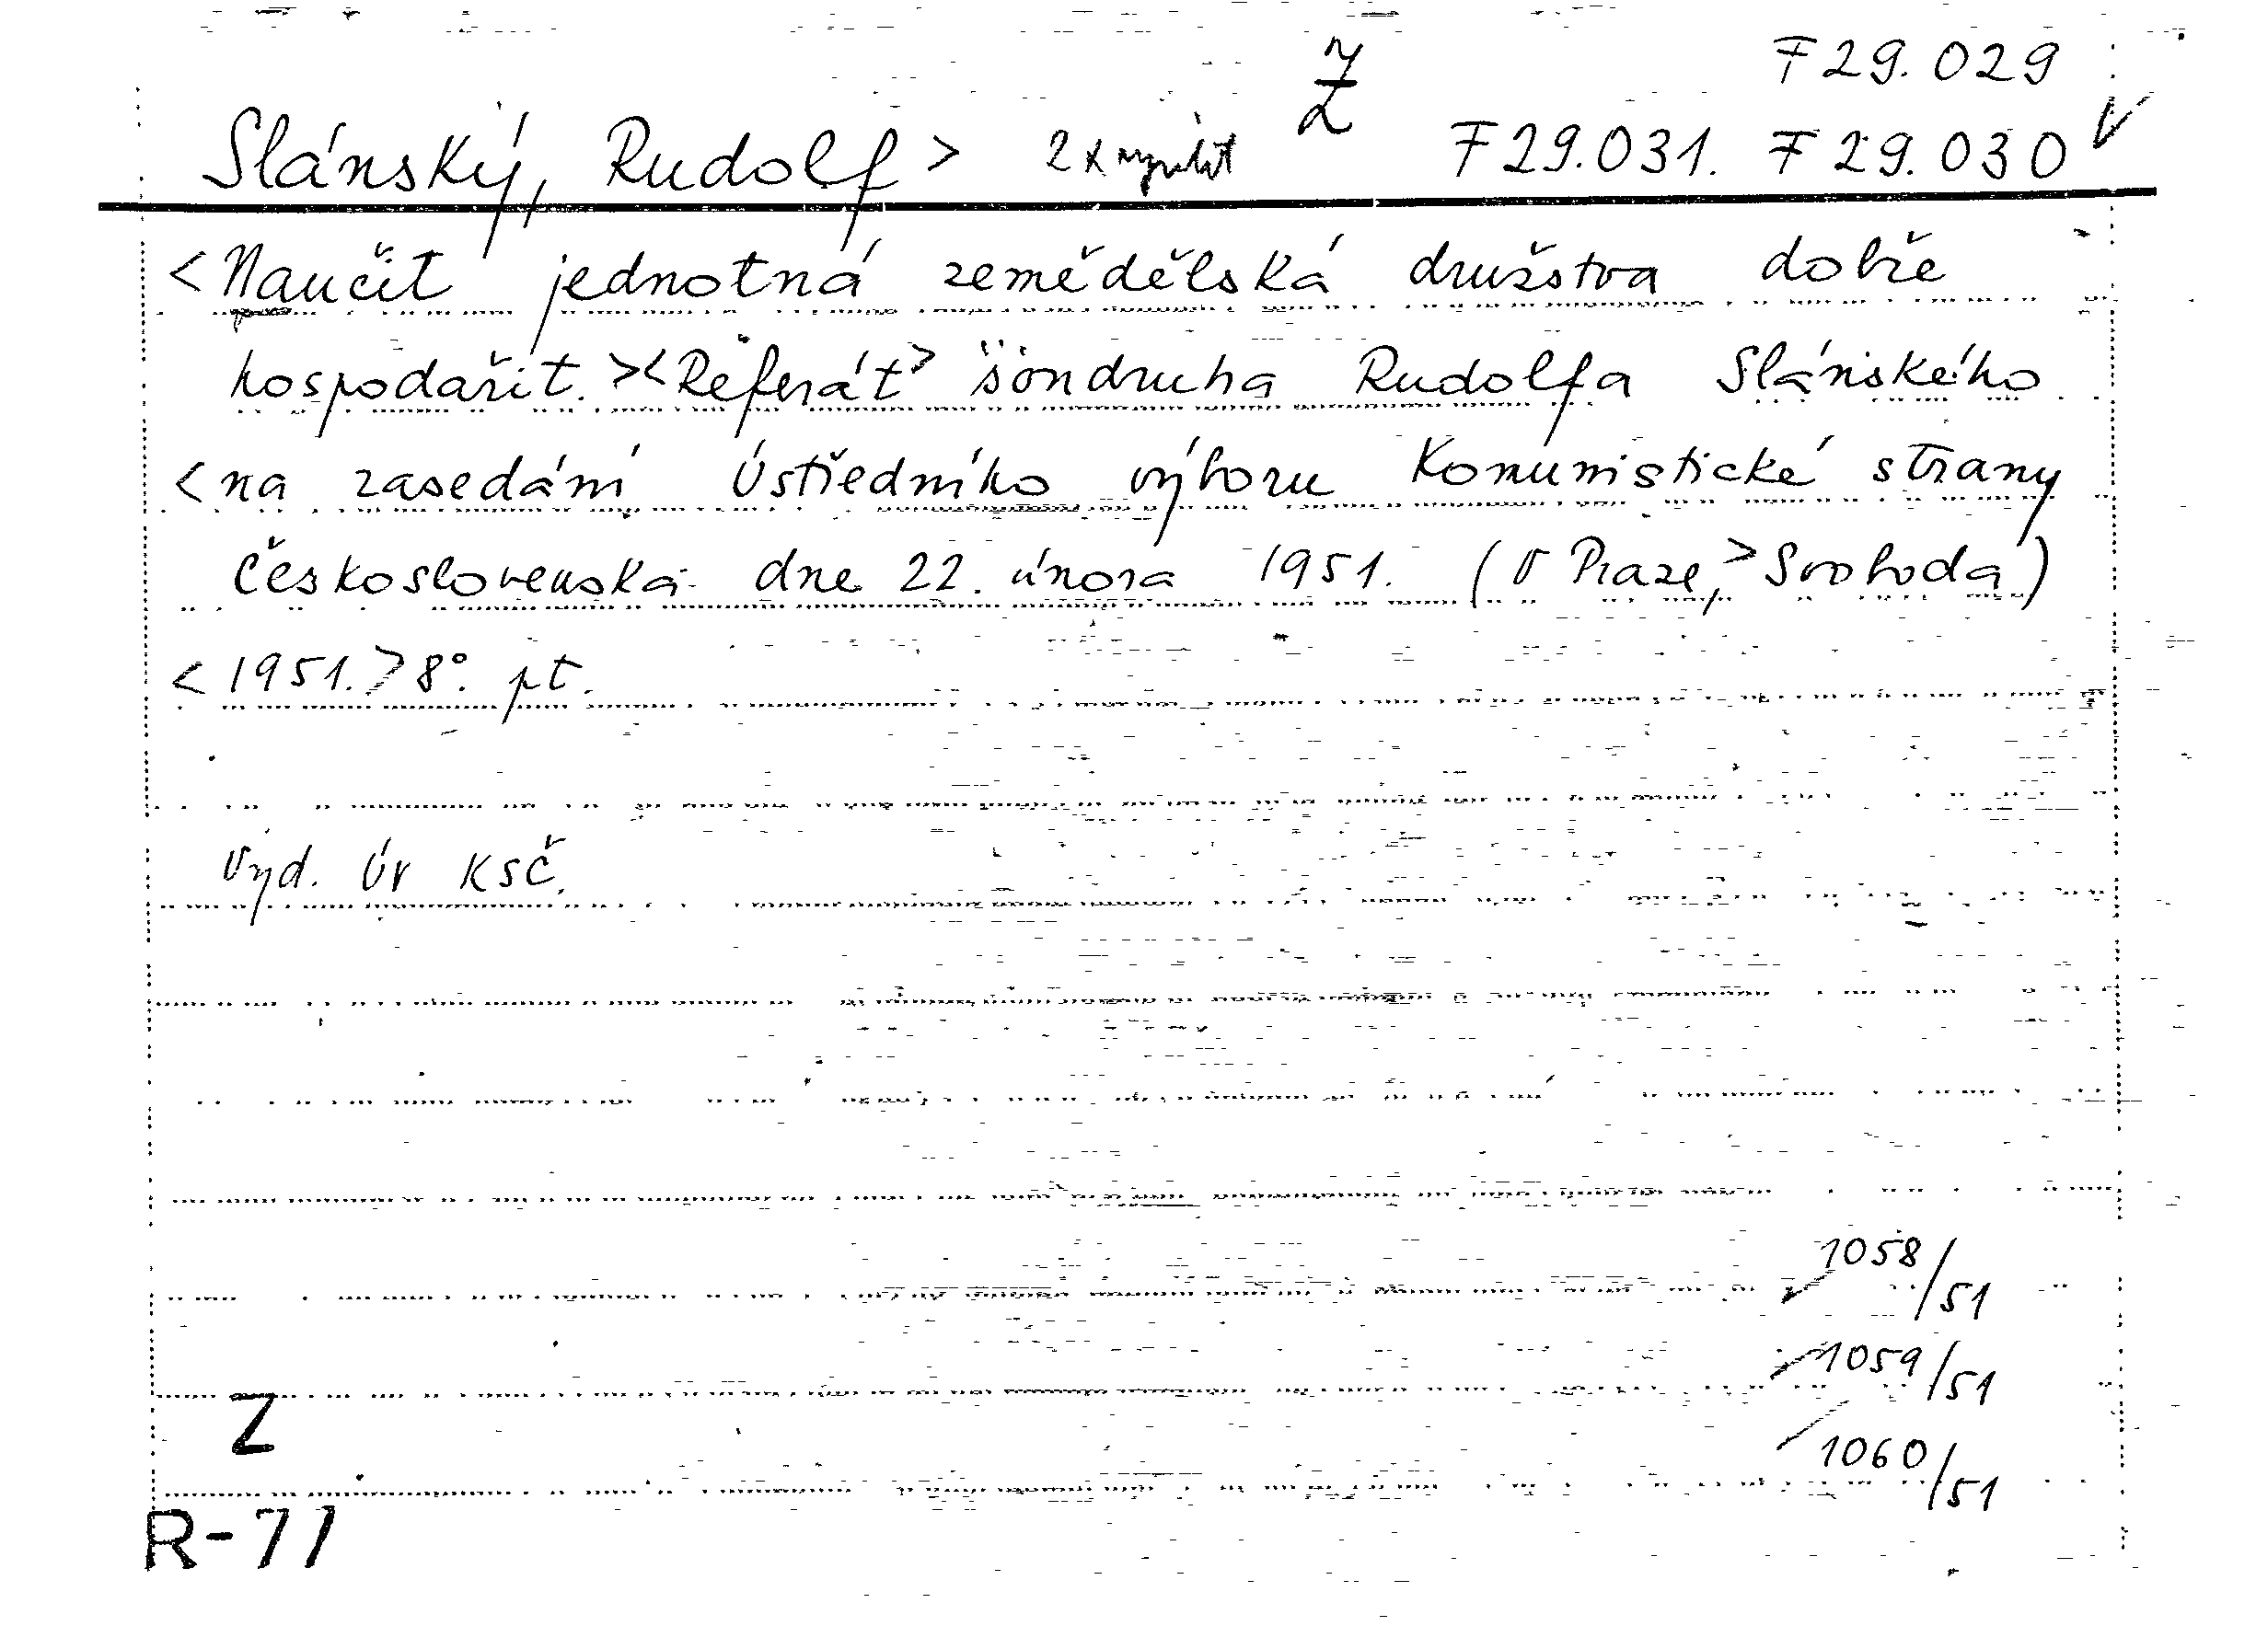 Ž F 29.029
Slánský, Rudolf > 2x F 29.031. F 29.030 V
< Naučit jednotná zemědělská družstva dobře
hospodařit. >< Referát > soudruha Rudolfa Slánského
< na zasedání Ústředního výboru Komunistické strany
Československa dne 22. února 1951. (V Praze, > Svoboda)
< 1951. > 8°. pt.
Vyd. ÚV KSČ.
1058/51
1059/51
Z
1060/51
R-77